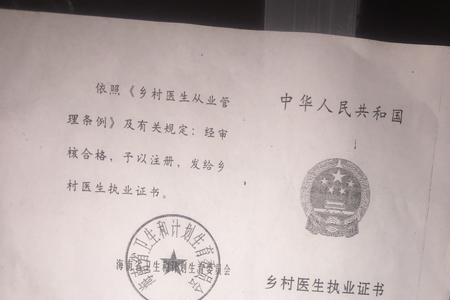 依照《乡村医生从业管
理条例》及有关规定：经审
核合格，予以注册，发给乡
村医生执业证书。
海南省卫生和计划生育委员会
海南省卫生和计划生育委员会
中华人民共和国
乡村医生执业证书